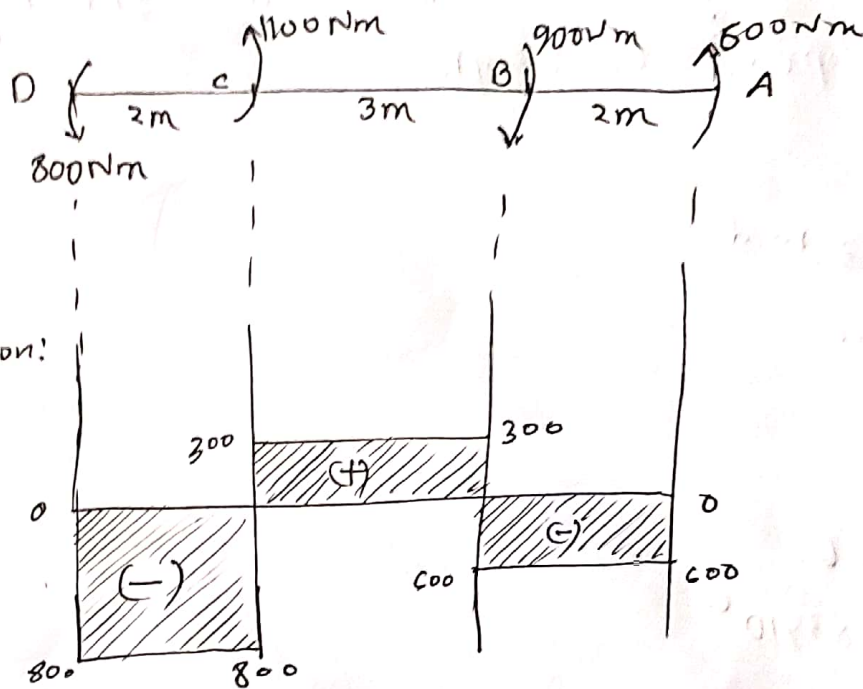 1100 Nm
900Nm
600Nm
D
C
B
A
2m
3m
2m
800Nm
on:
300
300
(+)
0
0
(-)
(-)
600
600
800
800